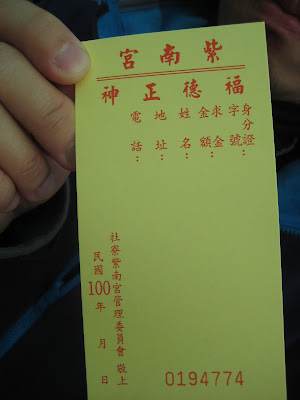 紫南宮
福德正神
身分證字號：
求金金額：
姓名：
地址：
電話：
社寮紫南宮管理委員會 敬上
民國100年 月 日
0194774